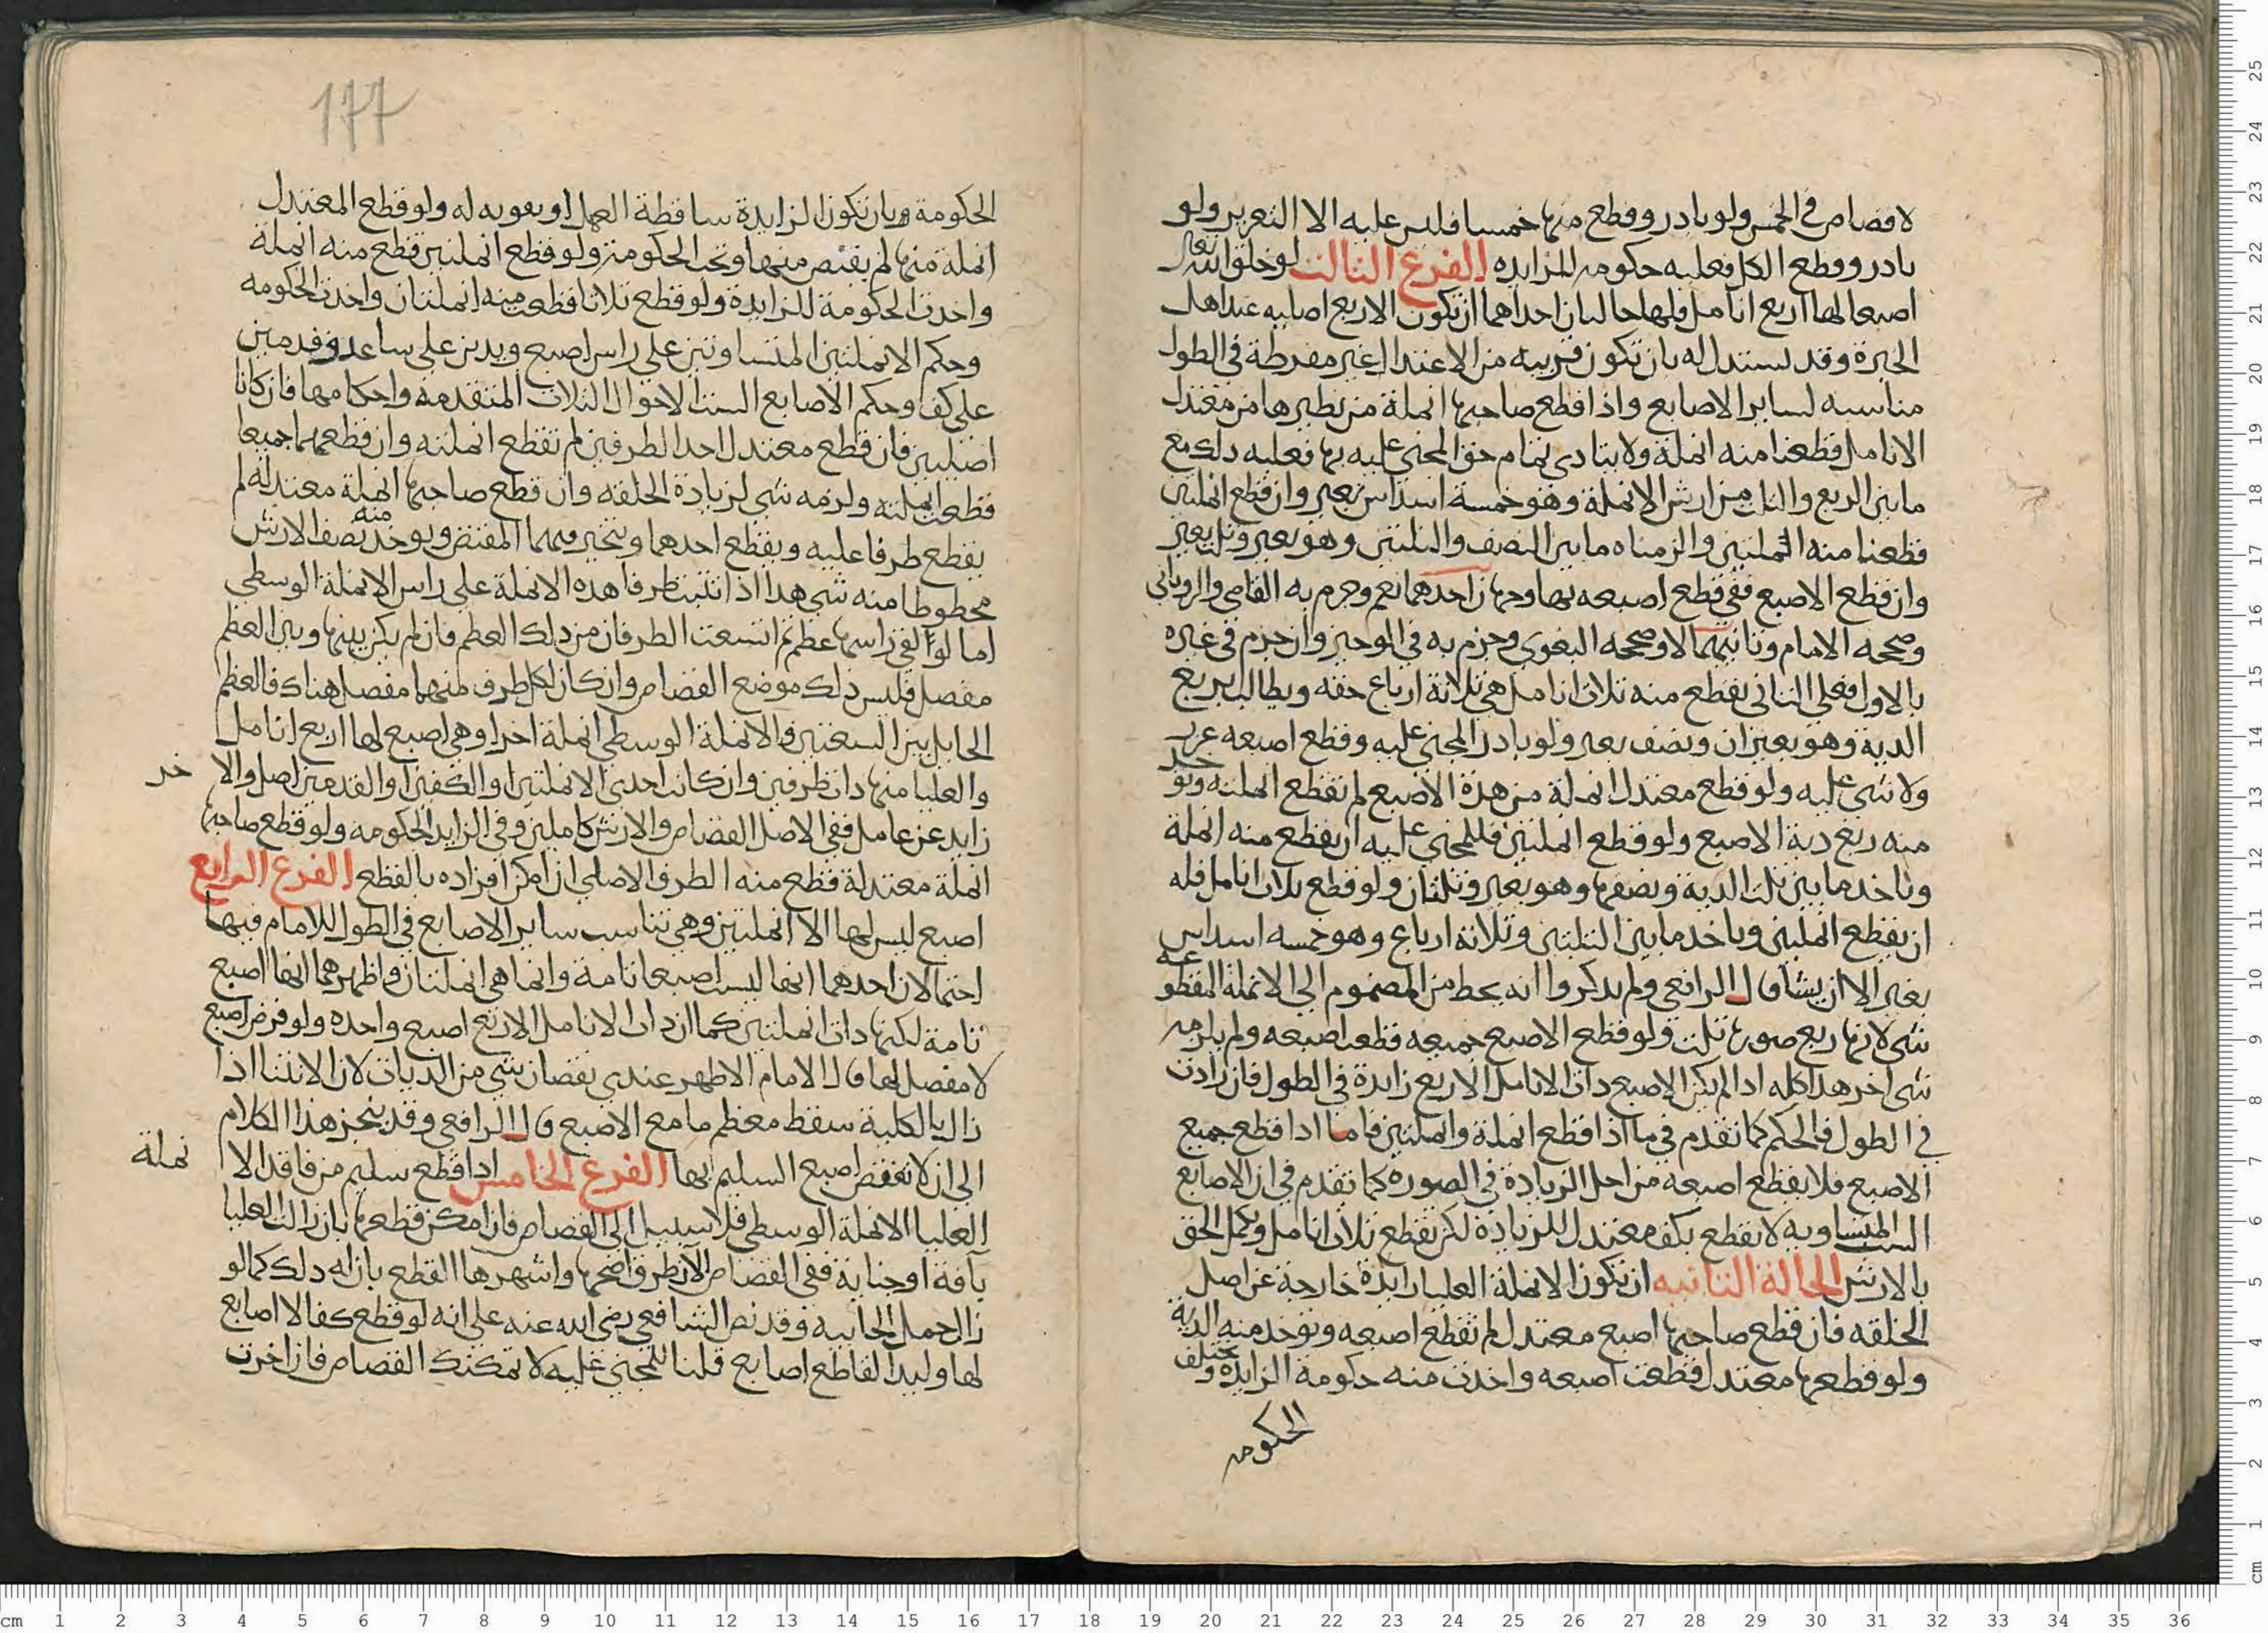 لاقصاص في الخمس ولو بادر وقطع منها خمسا فليس عليه الا التعزير ولو
بادر وقطع الكل فعليه حكومه للزايده الفرع الثالث لو خلق الله تعالى
اصبعا لها اربع انامل فلها حالتان احداهما ان تكون الاربع اصليه عند اهل
الخبرة وقد يستدل له بان تكون قريبه من الاعتدال غير مفرطة في الطول
مناسبه لساير الاصابع واذا قطع صاحبها انملة من نظيرها من معتدل
الانامل قطعنا منه انملة ولا يتادى تمام حق المجني عليه بها فعليه ذلك مع
ما بين الربع والثلث من ارش الانملة وهو خمسة اسداس بعير وان قطع انملتين
قطعنا منه انملتين والزمناه ما بين النصف والثلثين وهو بعير وثلثا بعير
وان قطع الاصبع ففي قطع اصبعه بها وجهان احدهما نعم وجزم به القاضي والروياني
وصححه الامام وثانيهما لا وصححه البغوي وجزم به في الوجيز وان جزم في غيره
بالاول فعلى الثاني يقطع منه ثلاث انامل هي ثلاثة ارباع حقه ويطالب بربع
الدية وهو بعيران ونصف بعير ولو بادر المجني عليه وقطع اصبعه عزر
ولا شي عليه ولو قطع معتدل انملة من هذة الاصبع لم تقطع انملته وتوخذ
منه ربع دية الاصبع ولو قطع انملتين فللمجني عليه ان يقطع منه انملة
وياخذ ما بين ثلث الدية ونصفها وهو بعير وثلثان ولو قطع ثلاث انامل فله
ان يقطع انملتين وياخذ ما بين الثلثين وثلاثة ارباع وهو خمسه اسداس
بعير الا ان يشا قال الرافعي ولم يذكروا انه يحط من المضموم الى الانملة المقطوعه
شي لانها ربع صورها ثلث ولو قطع الاصبع جميعه قطعت اصبعه ولم يلزمه
شي اخر هذا كله اذا لم يكن الاصبع ذات الانامل الاربع زايدة في الطول فان زادت
في الطول فالحكم كما تقدم في ما اذا قطع انملة وانملتين فاما اذا قطع جميع
الاصبع فلا يقطع اصبعه من اجل الزيادة في الصوره كما تقدم في ان الاصابع
الست المتساويه لا تقطع بكف معتدل للزيادة لكن تقطع ثلاث انامل ويكمل الحق
بالارش الحالة الثانيه ان تكون الانملة العليا زايدة خارجة عن اصل
الخلقه فان قطع صاحبها اصبع معتدل لم تقطع اصبعه وتوخذ منه الدية
ولو قطعها معتدل قطعت اصبعه واخذت منه حكومة الزايدة وتختلف
الحكومه
177
الحكومة وبان تكون الزايدة ساقطة العمل او مقويه له ولو قطع المعتدل
انملة منها لم يقتص منهما وتجب الحكومة ولو قطع انملتين قطع منه انملة
واخذت الحكومة للزايدة ولو قطع ثلاثا قطعت منه انملتان واخذت الحكومه
وحكم الانملتين المتساوتين على راس اصبع ويدين على ساعد وقدمين
على كف وحكم الاصابع الست الاحوال الثلاث المتقدمه واحكامها فان كانا
اصليين فان قطع معتدل احد الطرفين لم تقطع انملته وان قطعهما جميعا
قطعت انملته ولزمه شي لزيادة الخلقه وان قطع صاحبها انملة معتدله لم
يقطع طرفا عليه ويقطع احدهما ويتخير فيهما المقتص ويوخذ منه نصف الارش
محطوطا منه شي هذا اذا نبتت طرفا هذه الانملة على راس الانملة الوسطى
اما لو القي راسها عظم ثم انشعبت الطرفان من ذلك العظم فان لم يكن بينها وبين العظم
مفصل فليس ذلك موضع القصاص وان كان لكل طرف منهما مفصل هناك فالعظم
الحايل بين الشعبتين والانملة الوسطى انملة اخرا وهي اصبع لها اربع انامل
والعليا منها ذات طرفين وان كانت احدى الانملتين او الكفين او القدمين اصل والاخر
زايد عن عامل ففي الاصل القصاص والارش كاملين وفي الزايد الحكومه ولو قطع صاحبها
انملة معتدلة قطع منه الطرف الاصلي ان امكن افراده بالقطع الفرع الرابع
اصبع ليس لها الا انملتين وهي تناسب ساير الاصابع في الطول للامام فيها
احتمالان احدهما انها ليست اصبعا تامة وانما هي انملتان واظهرهما انها اصبع
تامة لكنها ذات انملتين كما ان ذات الانامل الاربع اصبع واحده ولو فرض اصبع
لا مفصل لها قال الامام الاظهر عندي نقصان شي من الديات لان الانثنا اذا
زال بالكلية سقط معظم منافع الاصبع قال الرافعي وقد ينجر هذا الكلام
الى ان لا تقتص اصبع السليم بها الفرع الخامس اذا قطع سليم من فاقد الانملة
العليا الانملة الوسطى فلا سبيل الى القصاص فان امكن قطعها بان زالت العليا
بافة او جناية ففي القصاص الان طرق اصحها واشهرها القطع بان له ذلك كما لو
زال حمل الجانيه وقد نص الشافعي رضى الله عنه على انه لو قطع كفا لا اصابع
لها وليد القاطع اصابع قلنا للمجني عليه لا تمكنك القصاص فان اخرت